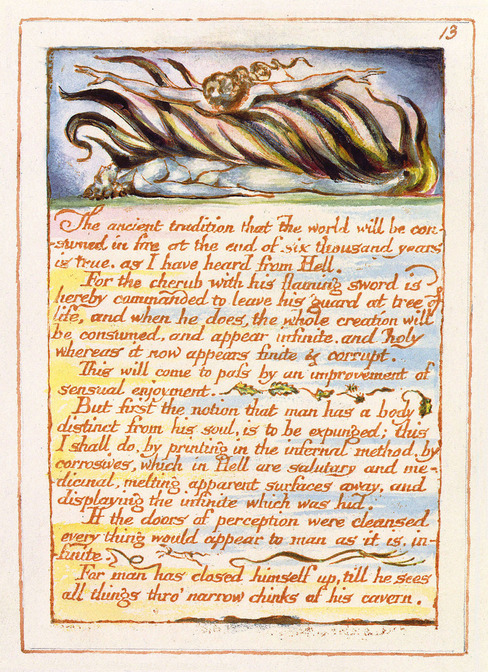 13
The ancient tradition that the world will be con-
-sumed in fire at the end of six thousand years
is true. as I have heard from Hell.
For the cherub with his flaming sword is
hereby commanded to leave his guard at tree of
life, and when he does, the whole creation will
be consumed, and appear infinite. and holy
whereas it now appears finite & corrupt.
This will come to pass by an improvement of
sensual enjoyment.
But first the notion that man has a body
distinct from his soul, is to be expunged; this
I shall do, by printing in the infernal method, by
corrosives, which in Hell are salutary and me-
-dicinal, melting apparent surfaces away, and
displaying the infinite which was hid.
If the doors of perception were cleansed
every thing would appear to man as it is, in-
-finite.
For man has closed himself up, till he sees
all things thro' narrow chinks of his cavern.